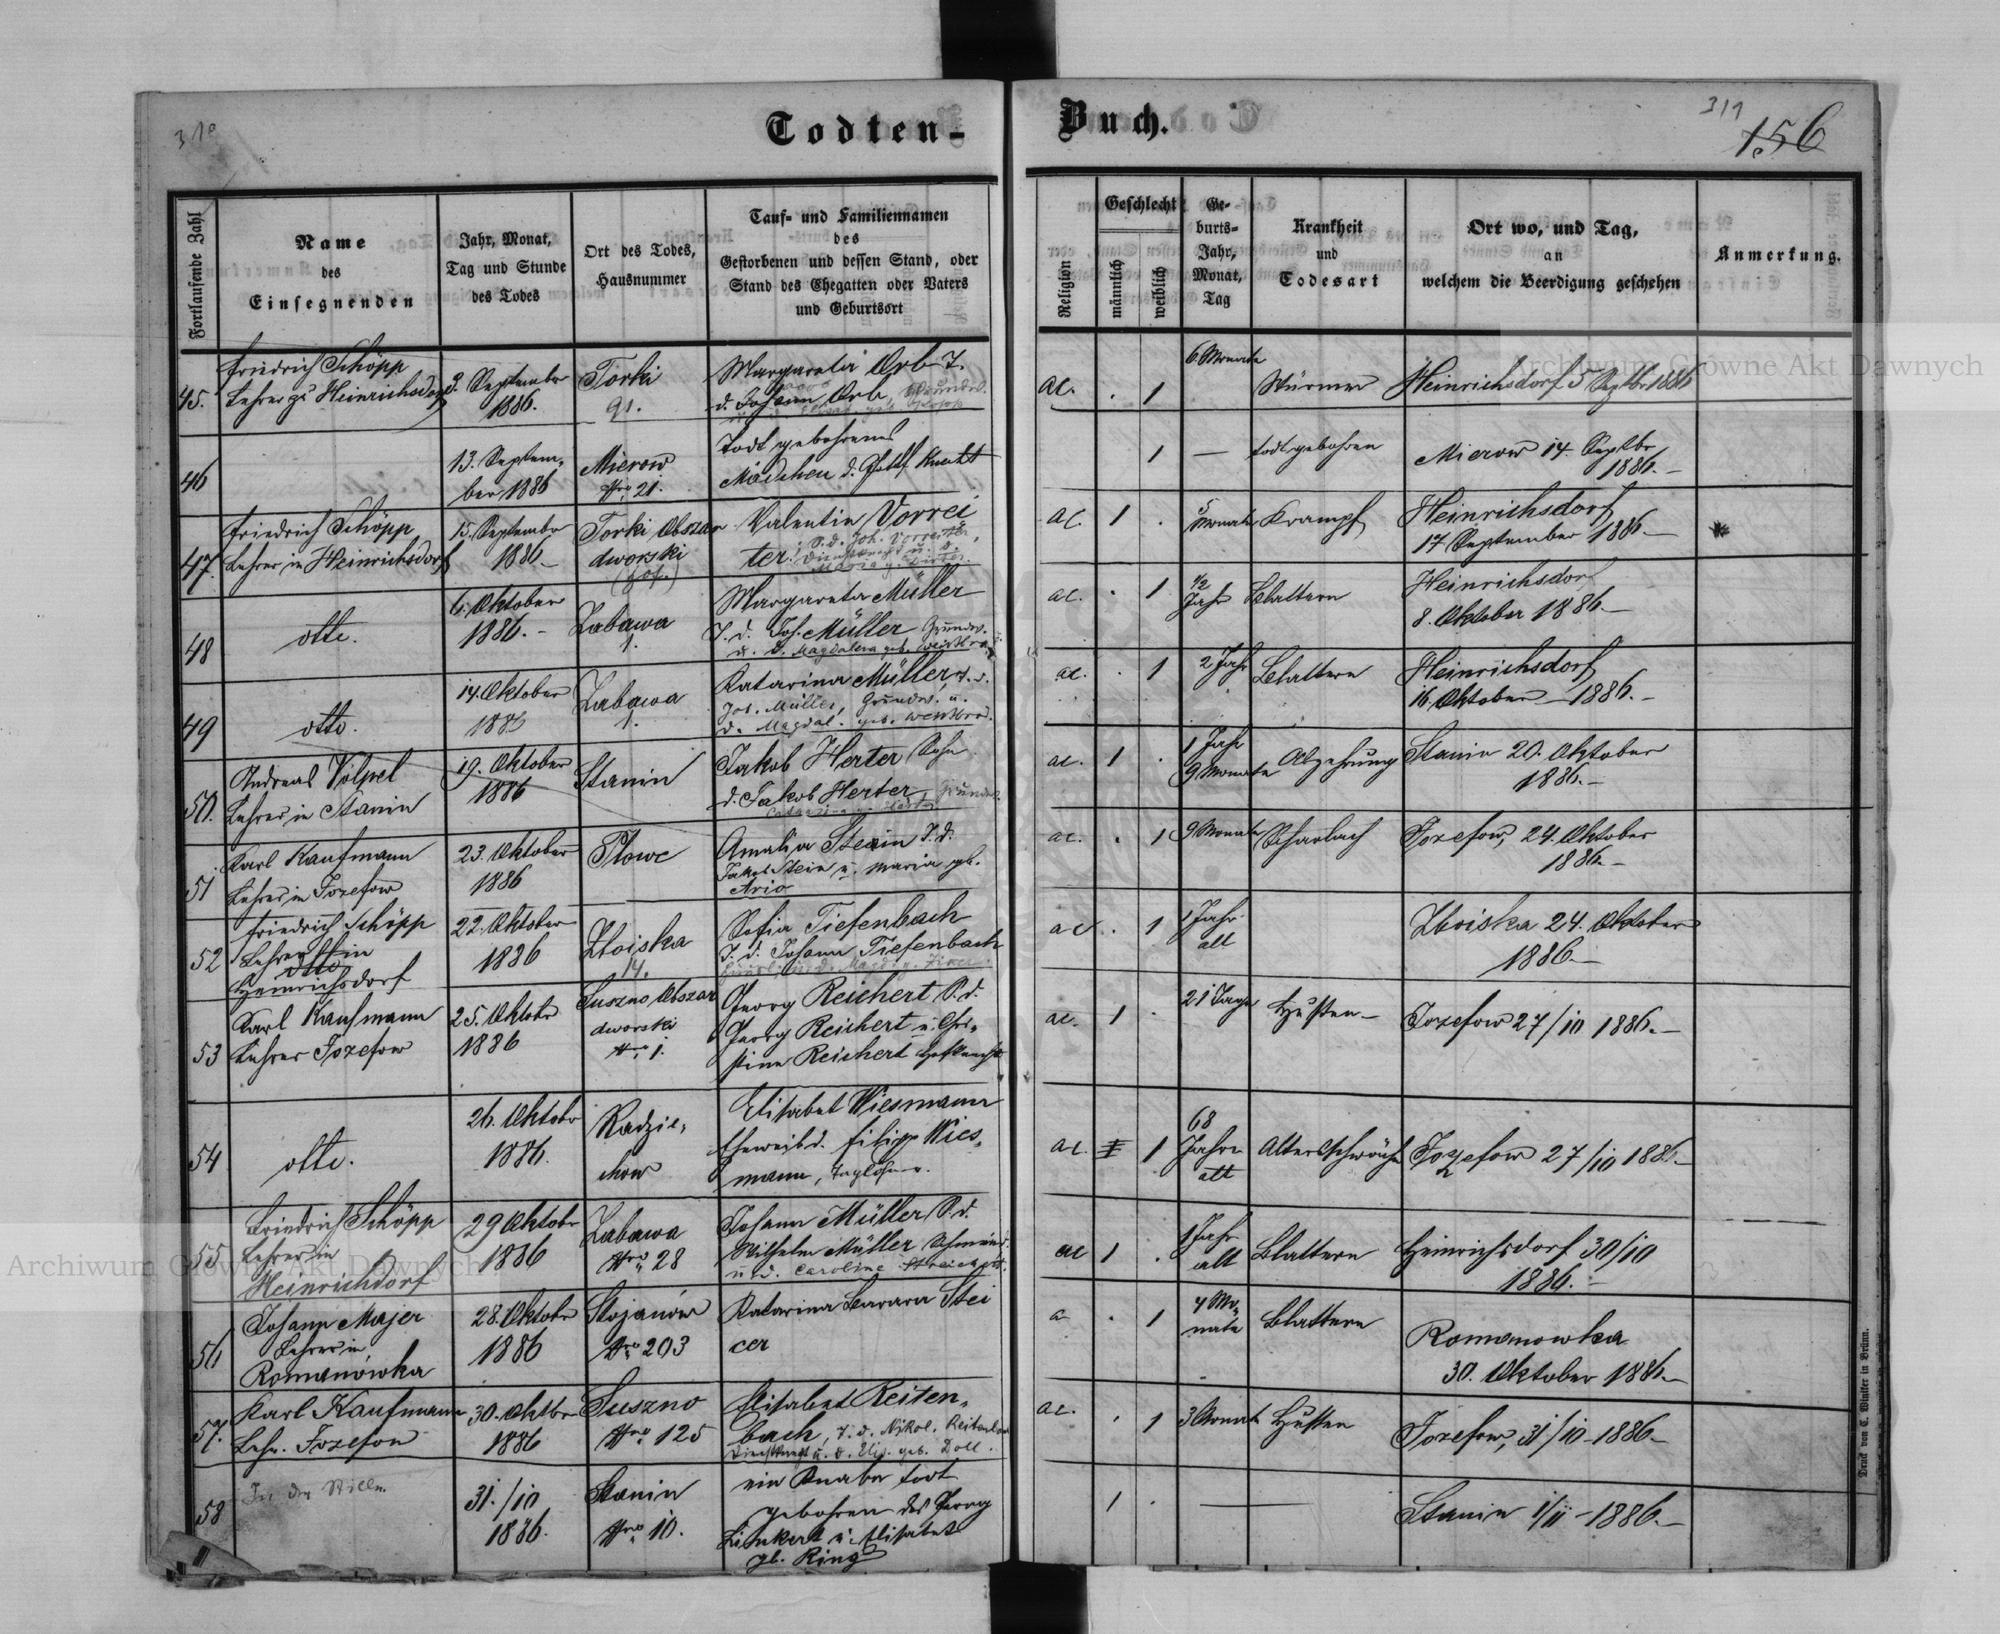 310
Todten-
Buch.
311
156
Fortlaufende Zahl
Name
des
Einsegnenden
Jahr, Monat,
Tag und Stunde
des Todes
Ort des Todes,
Hausnummer
Tauf- und Familiennamen
des
Gestorbenen und dessen Stand, oder
Stand des Ehegatten oder Vaters
und Geburtsort
Religion
Geschlecht
männlich
weiblich
Ge-
burts-
Jahr,
Monat,
Tag
Krankheit
und
Todesart
Ort wo, und Tag,
an
welchem die Beerdigung geschehen
Anmerkung.
45.
Friedrich Schöpp
Lehrer zu Heinrichsdorf
3. September
1886.
Torki
91.
Margareta Orb T.
d. Johann Orb,
ac. . 1
6 Monate
Würmer
Heinrichsdorf 5 Septbr 1886
46
13. Septem-
ber 1886
Mierow
Nro 21.
Todt gebohrenes
Mädchen d. Knecht
1 —
todtgebohren
Mierow 14 Septbr
1886.-
47.
Friedrich Schöpp
Lehrer in Heinrichsdorf
15. September
1886.-
Torki Obszar
dworski
Valentin Vorrei
ter. S. d. Joh. Vorreiter,
ac. 1 .
Monate
Krampf
Heinrichsdorf
17 September 1886.-
48
otto.
6. Oktober
1886.-
Zabawa
1.
Margareta Müller
T. d. Joh. Müller Grundw.
u. d. Magdalena geb.
ac. . 1
1/2
Jahr
Blattern
Heinrichsdorf
8. Oktober 1886.-
49
otto.
14. Oktober
1886
Zabawa
1.
Katarina Müller, T. d.
Joh. Müller, Grundw. u.
d. Magdal. geb.
ac. . 1
2 Jahr
Blattern
Heinrichsdorf
16. Oktober 1886.-
50.
Andreas Völpel
Lehrer in Stanin
19. Oktober
1886
Stanin
Jakob Herter Sohn
d. Jakob Herter,
ac. 1 .
1 Jahr
9 Monate
Abzehrung
Stanin 20. Oktober
1886.-
51
Karl Kaufmann
Lehrer in Jozefow
23. Oktober
1886
Płowe
Amalia Stein T. d.
Jakob Stein u. Maria gb.
Ario
ac. . 1
9 Monate
Scharlach
Jozefow, 24. Oktober
1886.-
52
Friedrich Schöpp
Lehrer in
Heinrichsdorf
22. Oktober
1886
Zboiska
14.
Sofia Tiefenbach
T. d. Johann Tiefenbach
ac. . 1
1 Jahr
alt
Zboiska 24. Oktober
1886.-
53
Karl Kaufmann
Lehrer Jozefow
25. Oktobr
1886
Suszno Obszar
dworski
Nro 1.
Georg Reichert S. d.
Georg Reichert u. Chri-
stine Reichert
ac. 1 .
21 Tage
Husten-
Jozefow 27/10 1886.-
54
otto.
26. Oktobr
1886.
Radzie-
chow
Elisabet Wiesmann
Eheweib d. Filipp Wies-
mann, Taglöhner.
ac. 1
68
Jahre
alt
Altersschwäche
Jozefow 27/10 1886.-
55
Friedrich Schöpp
Lehrer in
Heinrichdorf
29 Oktobr
1886
Zabawa
Nro 28
Johann Müller S. d.
Wilhelm Müller
u. d. Caroline
ac 1 .
1 Jahr
alt
Blattern
Heinrichsdorf 30/10
1886.-
56
Johann Majer
Lehrer in
Romanówka
28. Oktobr
1886
Stojanów
Nro 203
Katarina Barara Stei
cer
a . 1
4 Mo-
nate
Blattern
Romanowka
30. Oktober 1886.-
57.
Karl Kaufmann
Lehr. Jozefow
30. Oktbr
1886
Suszno
Nro 125
Elisabet Reiten-
bach, T. d. Nikol. Reitenbach
Dienstknecht u. d. Elis. geb. Doll.
ac. . 1
3 Monate
Husten
Jozefow, 31/10 - 1886.-
58
In der Stille.
31./10
1886.
Stanin
Nro 10.
ein Knabe todt
gebohren des Georg
Linkert u. Elisabet
gb. Ring
1 .
—
Stanin 1/11 - 1886.-
Druck von C. Winiker in Brünn.
Archiwum Główne Akt Dawnych
Archiwum Główne Akt Dawnych